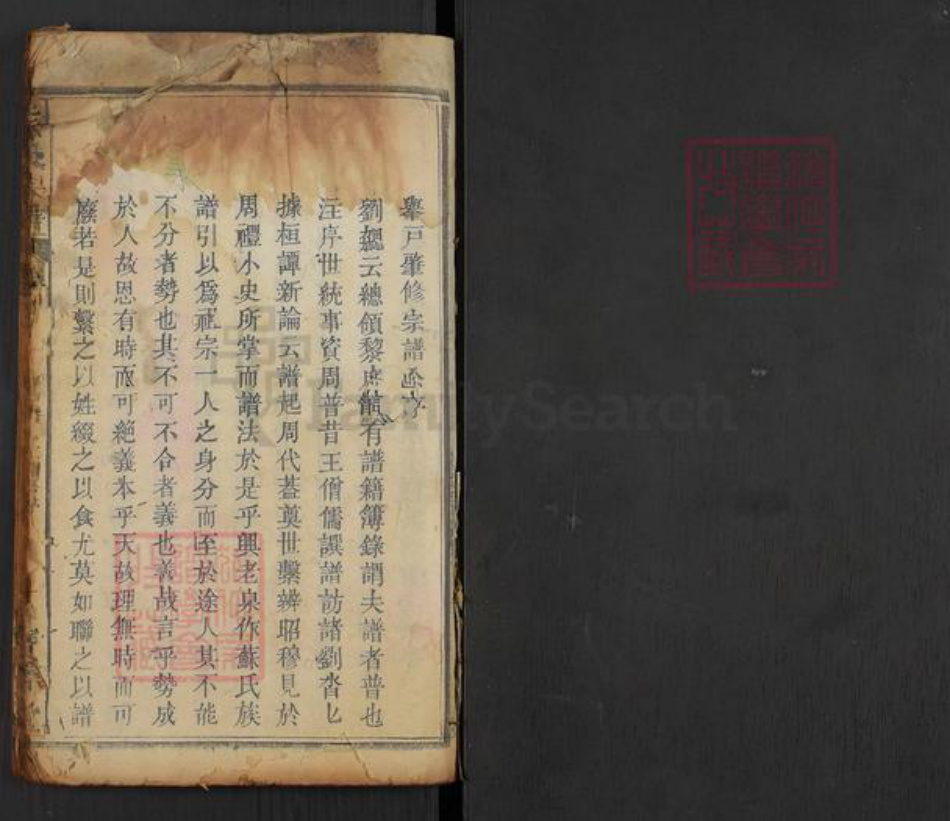 舉戶肇修宗譜總序
劉勰云總領黎庶則有譜籍簿錄謂夫譜者普也
注序世統事資周普昔王僧儒譔譜訪諸劉杳乜
據桓譚新論云譜起周代葢奠世繫辨昭穆見於
周禮小史所掌而譜法於是乎興老泉作蘇氏族
譜引以爲祖宗一人之身分而至於途人其不能
不分者勢也其不可不合者義也義故言乎勢成
於人故恩有時而可絕義本乎天故理無時而可
廢若是則繫之以姓綴之以食尤莫如聯之以譜
FamilySearch